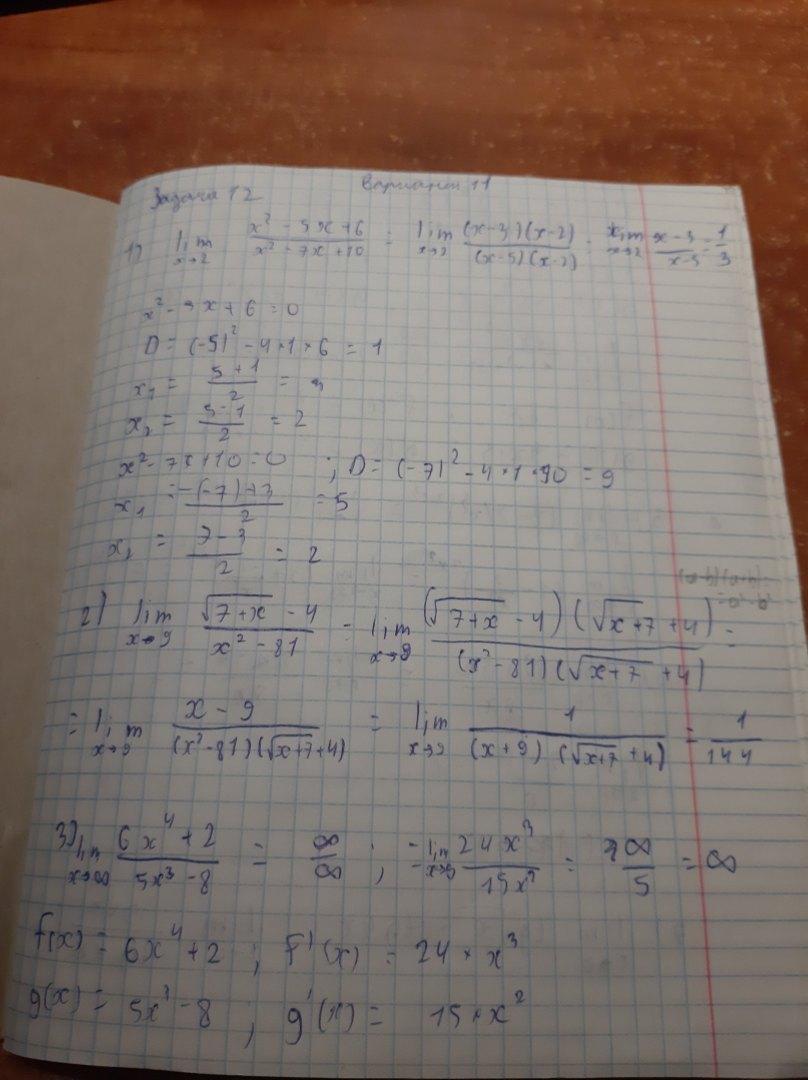 Задача 12 Вариант 11
1) lim x→2 (x² - 5x + 6)/(x² - 7x + 10) = lim x→2 (x-3)(x-2)/(x-5)(x-2) = lim x→2 (x-3)/(x-5) = 1/3
x² - 5x + 6 = 0
D = (-5)² - 4·1·6 = 1
x₁ = (5+1)/2 = 3
x₂ = (5-1)/2 = 2
x² - 7x + 10 = 0 ; D = (-7)² - 4·1·10 = 9
x₁ = (-(-7)+3)/2 = 5
x₂ = (7-3)/2 = 2
2) lim x→9 (√(7+x) - 4)/(x² - 81) = lim x→9 (√(7+x) - 4)(√(x+7) + 4)/(x² - 81)(√(x+7) + 4) =
= lim x→9 (x - 9)/(x² - 81)(√(x+7) + 4) = lim x→9 1/(x+9)(√(x+7) + 4) = 1/144
3) lim x→∞ (6x⁴ + 2)/(5x³ - 8) = ∞/∞ ; = lim x→∞ 24x³/15x² = ∞/5 = ∞
f(x) = 6x⁴ + 2 ; f'(x) = 24 · x³
g(x) = 5x³ - 8 ; g'(x) = 15 · x²